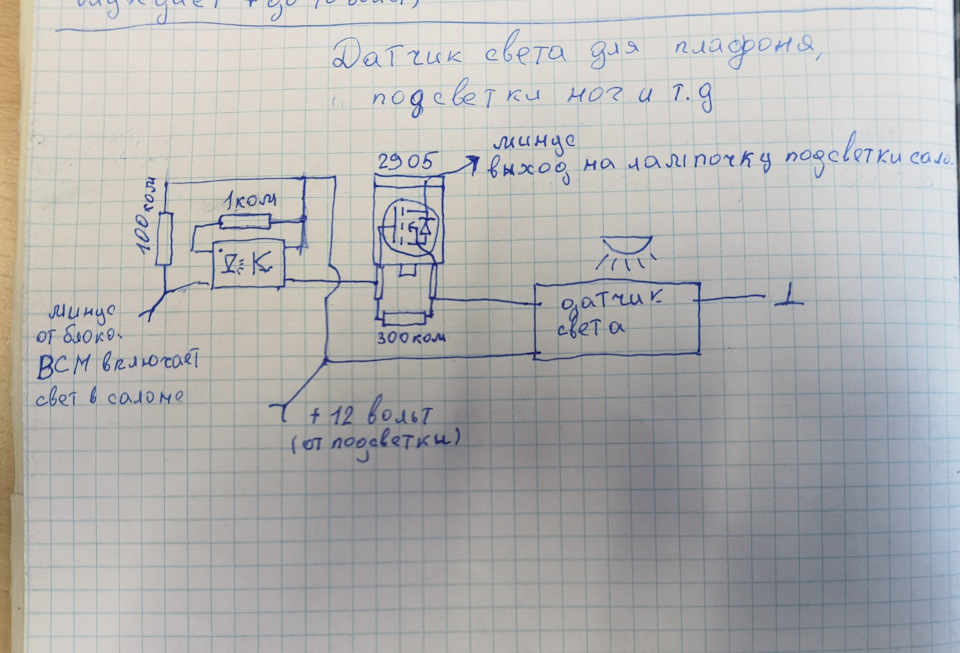 Датчик света для плафоня,
подсветки ног и т.д
2905
минус
выход на лампочку подсветки сало.
100 ком
1ком
минус
от блока
ВСМ включает
свет в салоне
300 ком
датчик
света
+ 12 вольт
(от подсветки)